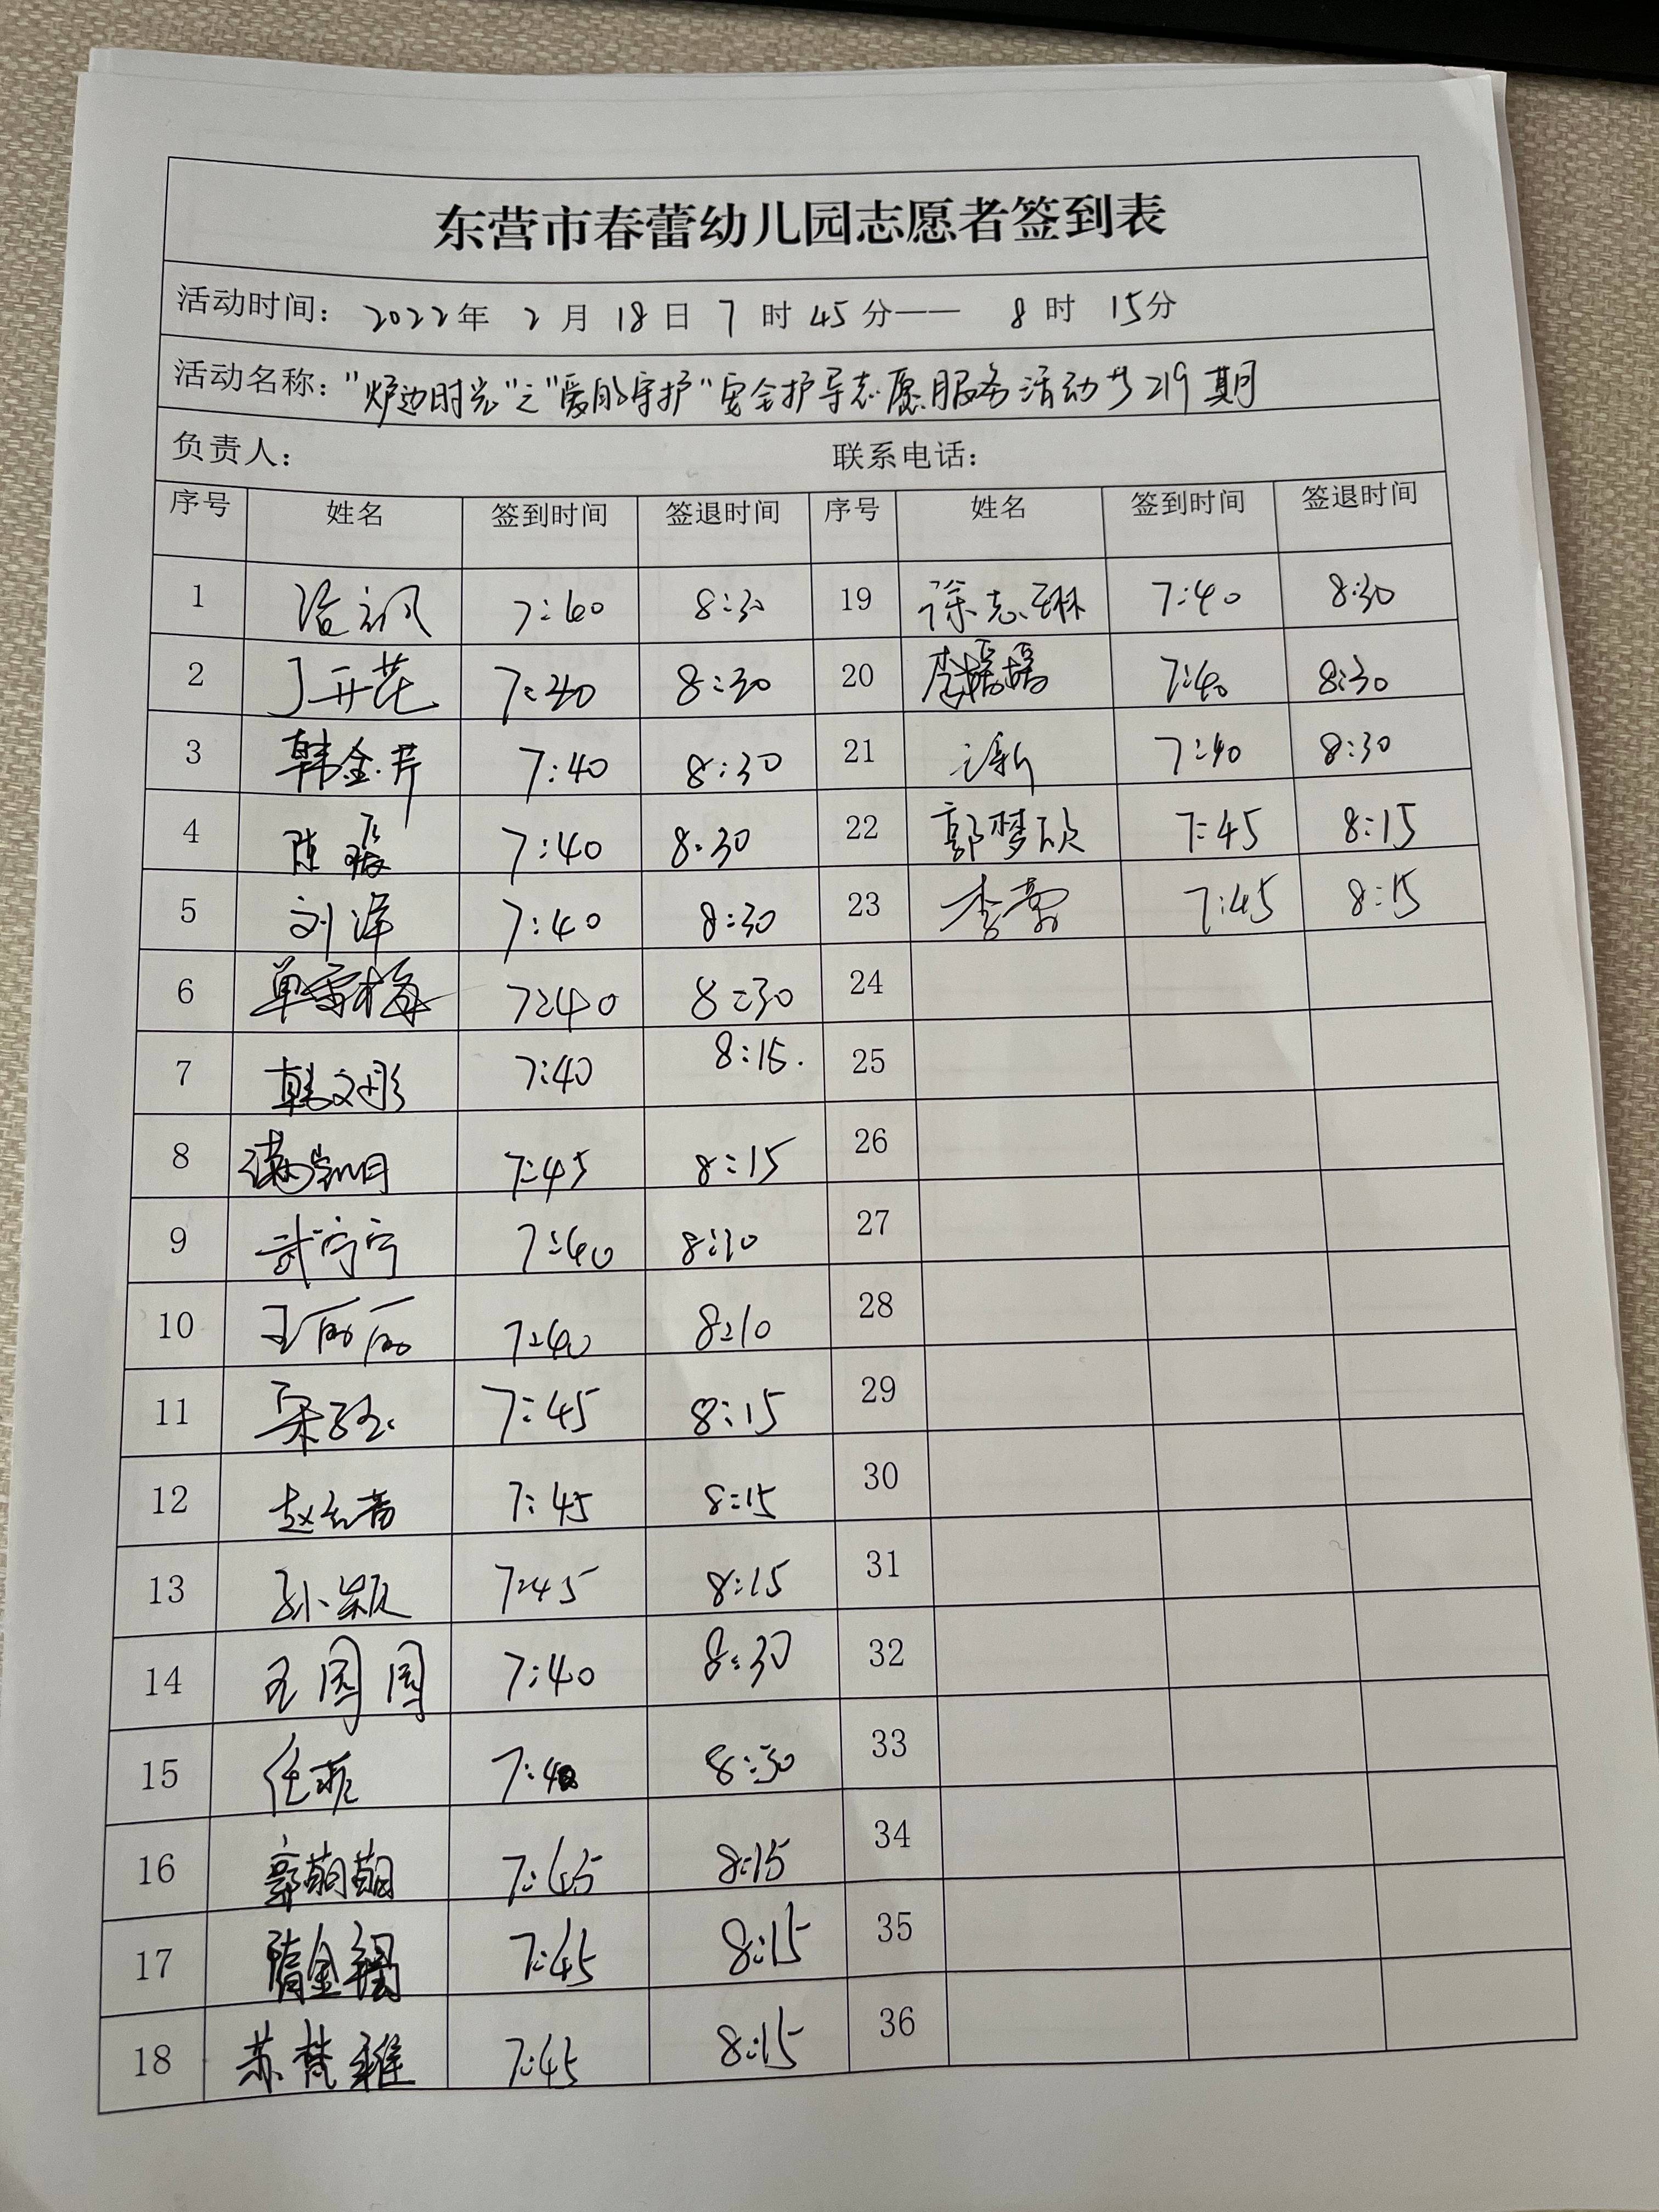 东营市春蕾幼儿园志愿者签到表
活动时间: 2022年 2月 18日 7时 45分—— 8时 15分
活动名称: "炉边时光"之"爱的守护"安全护导志愿服务活动共219期
负责人: 联系电话:
序号 姓名 签到时间 签退时间 序号 姓名 签到时间 签退时间
1 7:40 8:30 19 徐志琳 7:40 8:30
2 丁开花 7:40 8:30 20 李媛媛 7:40 8:30
3 韩金芹 7:40 8:30 21 7:40 8:30
4 陈璐 7:40 8:30 22 郭梦欣 7:45 8:15
5 刘洋 7:40 8:30 23 李 7:45 8:15
6 单雪梅 7:40 8:30 24
7 韩文彤 7:40 8:15. 25
8 7:45 8:15 26
9 武宁宁 7:40 8:10 27
10 王丽丽 7:40 8:10 28
11 宋 7:45 8:15 29
12 赵 7:45 8:15 30
13 孙颖 7:45 8:15 31
14 王园园 7:40 8:30 32
15 任 7:40 8:30 33
16 郭萌萌 7:45 8:15 34
17 隋金 7:45 8:15 35
18 苏梵雅 7:45 8:15 36